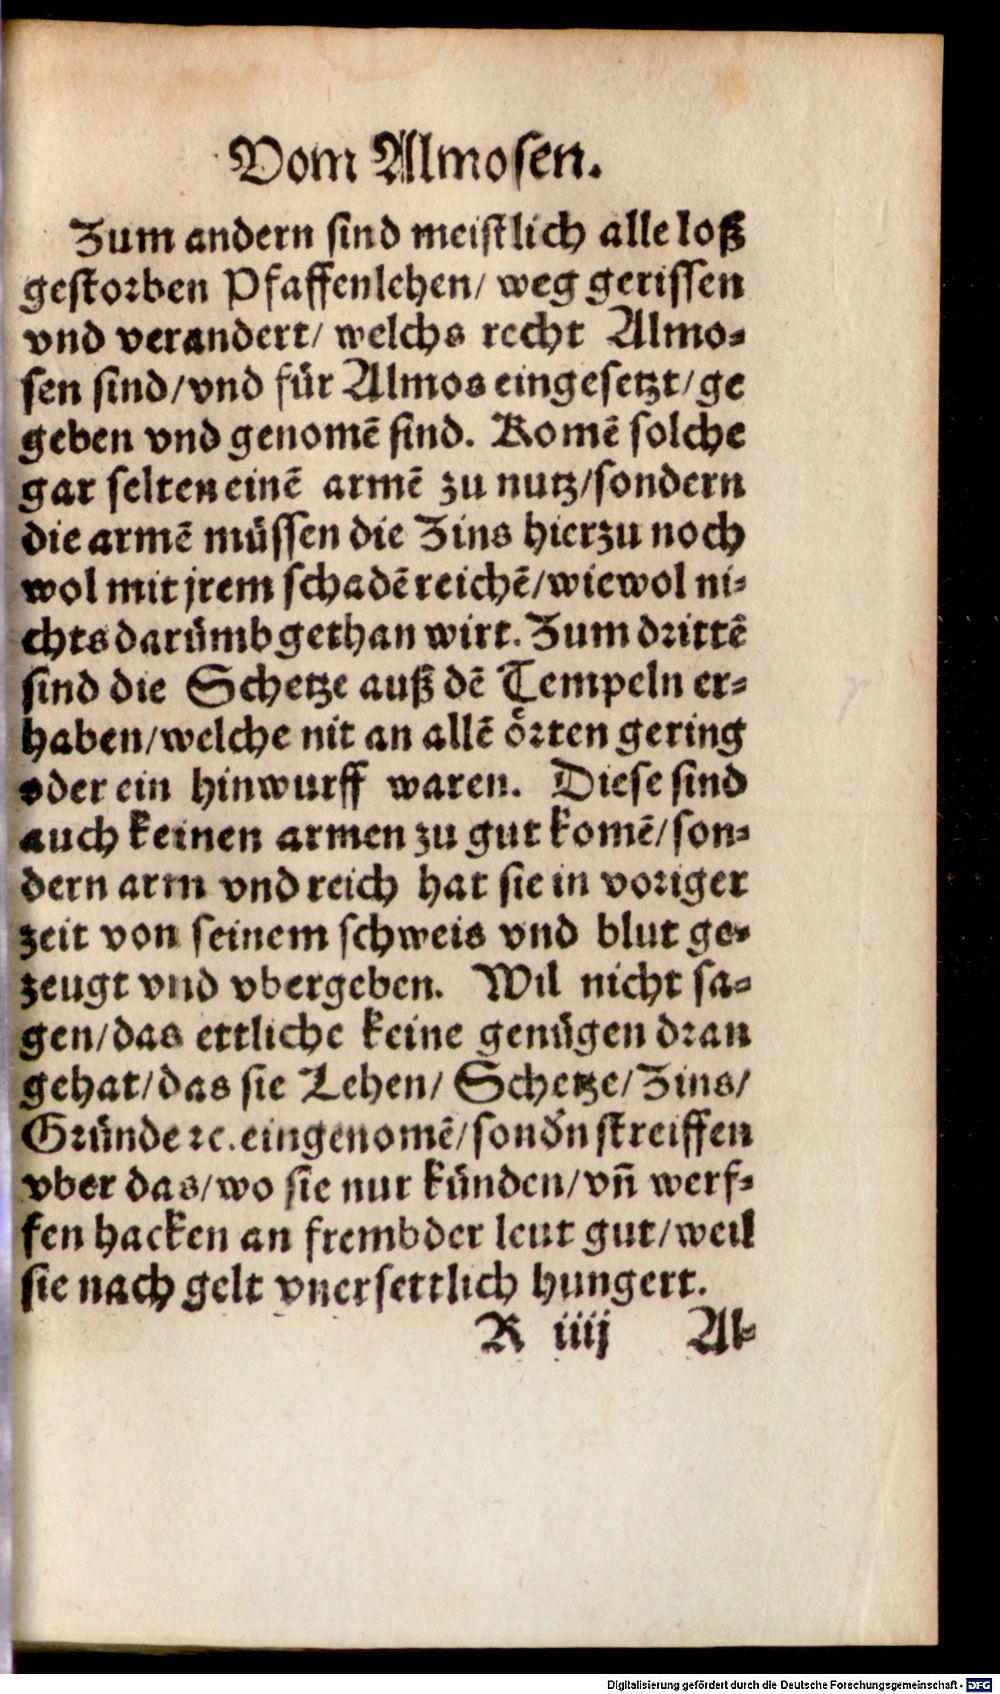 Vom Almosen.
Zum andern sind meistlich alle loß
gestorben Pfaffenlehen/ weg gerissen
vnd verandert/ welchs recht Almo-
sen sind/vnd für Almos eingesetzt/ge
geben vnd genomē sind. Komē solche
gar selten einē armē zu nutz/sondern
die armē müssen die Zins hierzu noch
wol mit jrem schadē reichē/wiewol ni-
chts darümb gethan wirt. Zum drittē
sind die Schetze auß dē Tempeln er-
haben/welche nit an allē örten gering
oder ein hinwurff waren. Diese sind
auch keinen armen zu gut komē/son-
dern arm vnd reich hat sie in voriger
zeit von seinem schweis vnd blut ge-
zeugt vnd vbergeben. Wil nicht sa-
gen/das ettliche keine genügen dran
gehat/das sie Lehen/ Schetze/Zins/
Gründe ꝛc. eingenomē/sondn̄ streiffen
vber das/wo sie nur künden/vn̄ werf-
fen hacken an frembder leut gut/weil
sie nach gelt vnersettlich hungert.
R iiij Al-
Digitalisierung gefördert durch die Deutsche Forschungsgemeinschaft - DFG